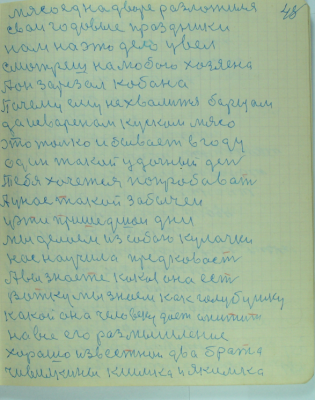 48
мясоед на дворе разложиля
свои годовые праздники
нам на это дело увел
смотриш на любого хозяена
Аон зарезал кобана
Почему ему нехвалитя барщам
да сваренам куском мясо
это только и бывает в году
один такой удочный ден
Тебя хочется попробават
Аунас такой забычеи
уже пришедшои дни
мы делаем из собою кулачки
нас научила предковаст
Авы знаете какоя она ест
Вотку мы знаем как голубушку
какой она человеку дает
на вне его размышление
хорошо известной два брата
кишка и Якимка